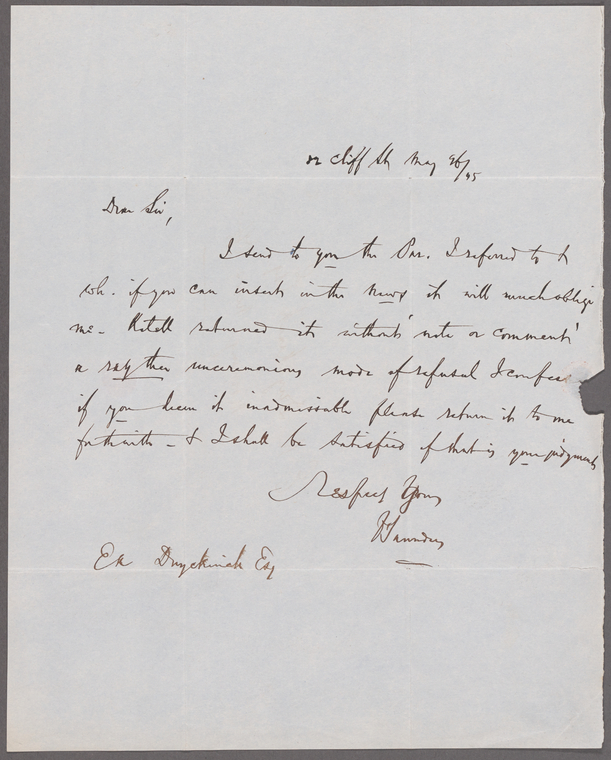 82 Cliff St May 26/45
Dear Sir,
I send to you the Par. I referred to &
wh. if you can insert in the News it will much oblige
me - Ketell returned it without note or comment
a rayther unceremonious mode of refusal I confess
if you deem it inadmissable please return it to me
forthwith - & I shall be satisfied if that is your judgment
Respect Yours
Saunders
Ev Duyckinck Esq